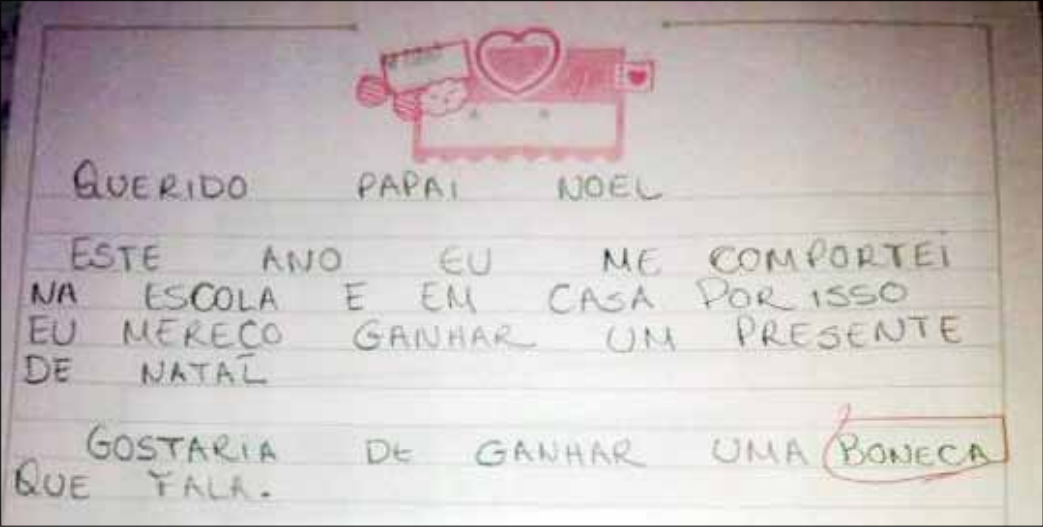 QUERIDO PAPAI NOEL
ESTE ANO EU ME COMPORTEI
NA ESCOLA E EM CASA POR ISSO
EU MERECO GANHAR UM PRESENTE
DE NATAL
GOSTARIA DE GANHAR UMA BONECA
QUE FALA.